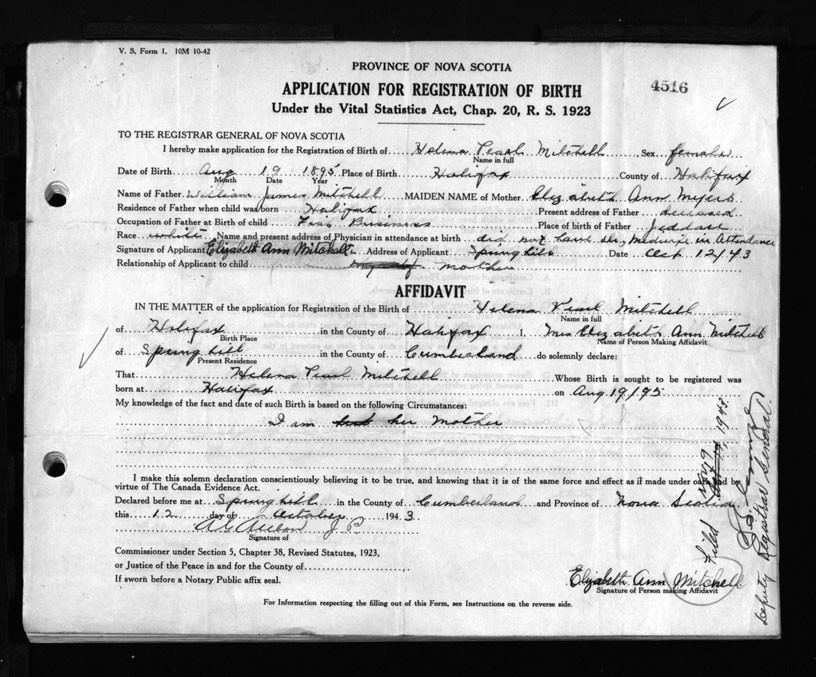 V. S. Form 1. 10M 10-42
PROVINCE OF NOVA SCOTIA
4516
APPLICATION FOR REGISTRATION OF BIRTH
Under the Vital Statistics Act, Chap. 20, R. S. 1923
TO THE REGISTRAR GENERAL OF NOVA SCOTIA
I hereby make application for the Registration of Birth of Helena Pearl Mitchell Sex female
Name in full
Date of Birth Aug 19 1895 Place of Birth Halifax County of Halifax
Month Date Year
Name of Father William James Mitchell MAIDEN NAME of Mother Elizabeth Ann Myers
Residence of Father when child was born Halifax Present address of Father deceased
Occupation of Father at Birth of child Fish Business Place of Birth of father Jeddare
Race white Name and present address of Physician in attendance at birth did not have Dr, Midwife in Attendance
Signature of Applicant Elizabeth Ann Mitchell Address of Applicant Springhill Date Oct 12/43
Relationship of Applicant to child myself mother
AFFIDAVIT
IN THE MATTER of the application for Registration of the Birth of Helena Pearl Mitchell
Name in full
of Halifax in the County of Halifax I, Mrs Elizabeth Ann Mitchell
Birth Place Name of Person Making Affidavit
of Springhill in the County of Cumberland do solemnly declare:
Present Residence
That Helena Pearl Mitchell Whose Birth is sought to be registered was
born at Halifax on Aug 19/95
My knowledge of the fact and date of such Birth is based on the following Circumstances:
I am her Mother
I make this solemn declaration conscientiously believing it to be true, and knowing that it is of the same force and effect as if made under oath and by
virtue of The Canada Evidence Act.
Declared before me at Springhill in the County of Cumberland and Province of Nova Scotia
this 12 day of October 1943
J. P.
Signature of
Commissioner under Section 5, Chapter 38, Revised Statutes, 1923,
or Justice of the Peace in and for the County of
If sworn before a Notary Public affix seal.
Elizabeth Ann Mitchell
Signature of Person making Affidavit
For Information respecting the filling out of this Form, see Instructions on the reverse side.
Filed Nov 9 1943
Deputy Registrar General.